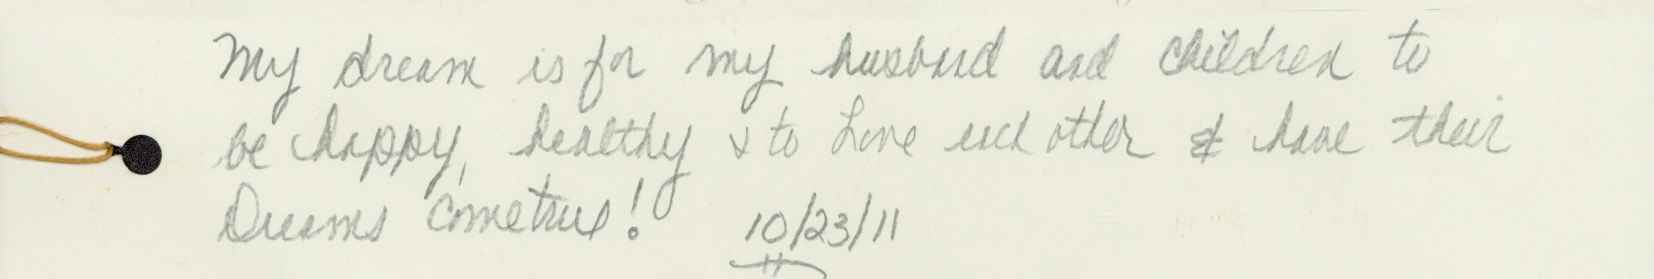 My dream is for my husband and children to
be happy, healthy & to Love each other & have their
Dreams come true! 10/23/11